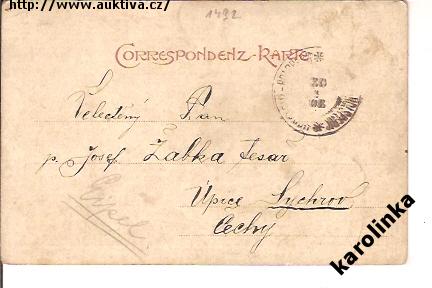 http://www.auktiva.cz/
1492
CORRESPONDENZ-KARTE
Velectěný Pan
p. Josef Žabka tesar
Úpice Sychrov
Čechy
karolinka